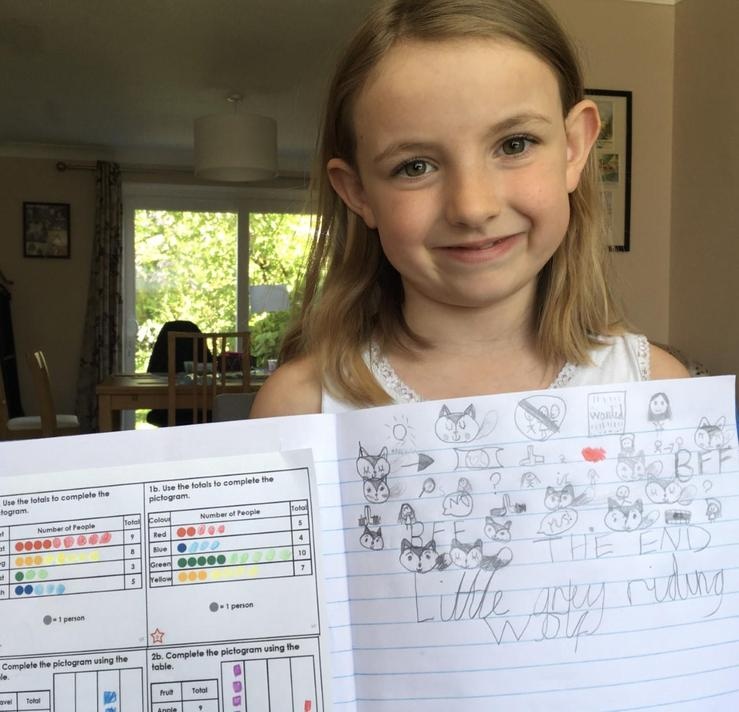 Use the totals to complete the
togram.
Number of People
Total
9
8
3
5
= 1 person
Complete the pictogram using the
le.
avel Total
1b. Use the totals to complete the
pictogram.
Colour Number of People Total
Red 5
Blue 4
Green 10
Yellow 7
= 1 person
2b. Complete the pictogram using the
table.
Fruit Total
Apple 9
BFF
?
?
BFF
THE END
Little grey riding
Wolf